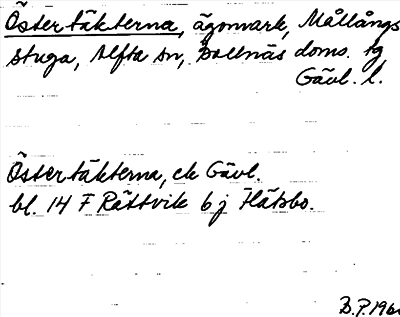 Östertäkterna, ägomark, Mållångs
stuga, Alfta sn, Bollnäs doms. tg
Gävl. l.
Östertäkterna, ek Gävl.
bl. 14 F Rättvik 6 j Flätsbo.
B.P. 196